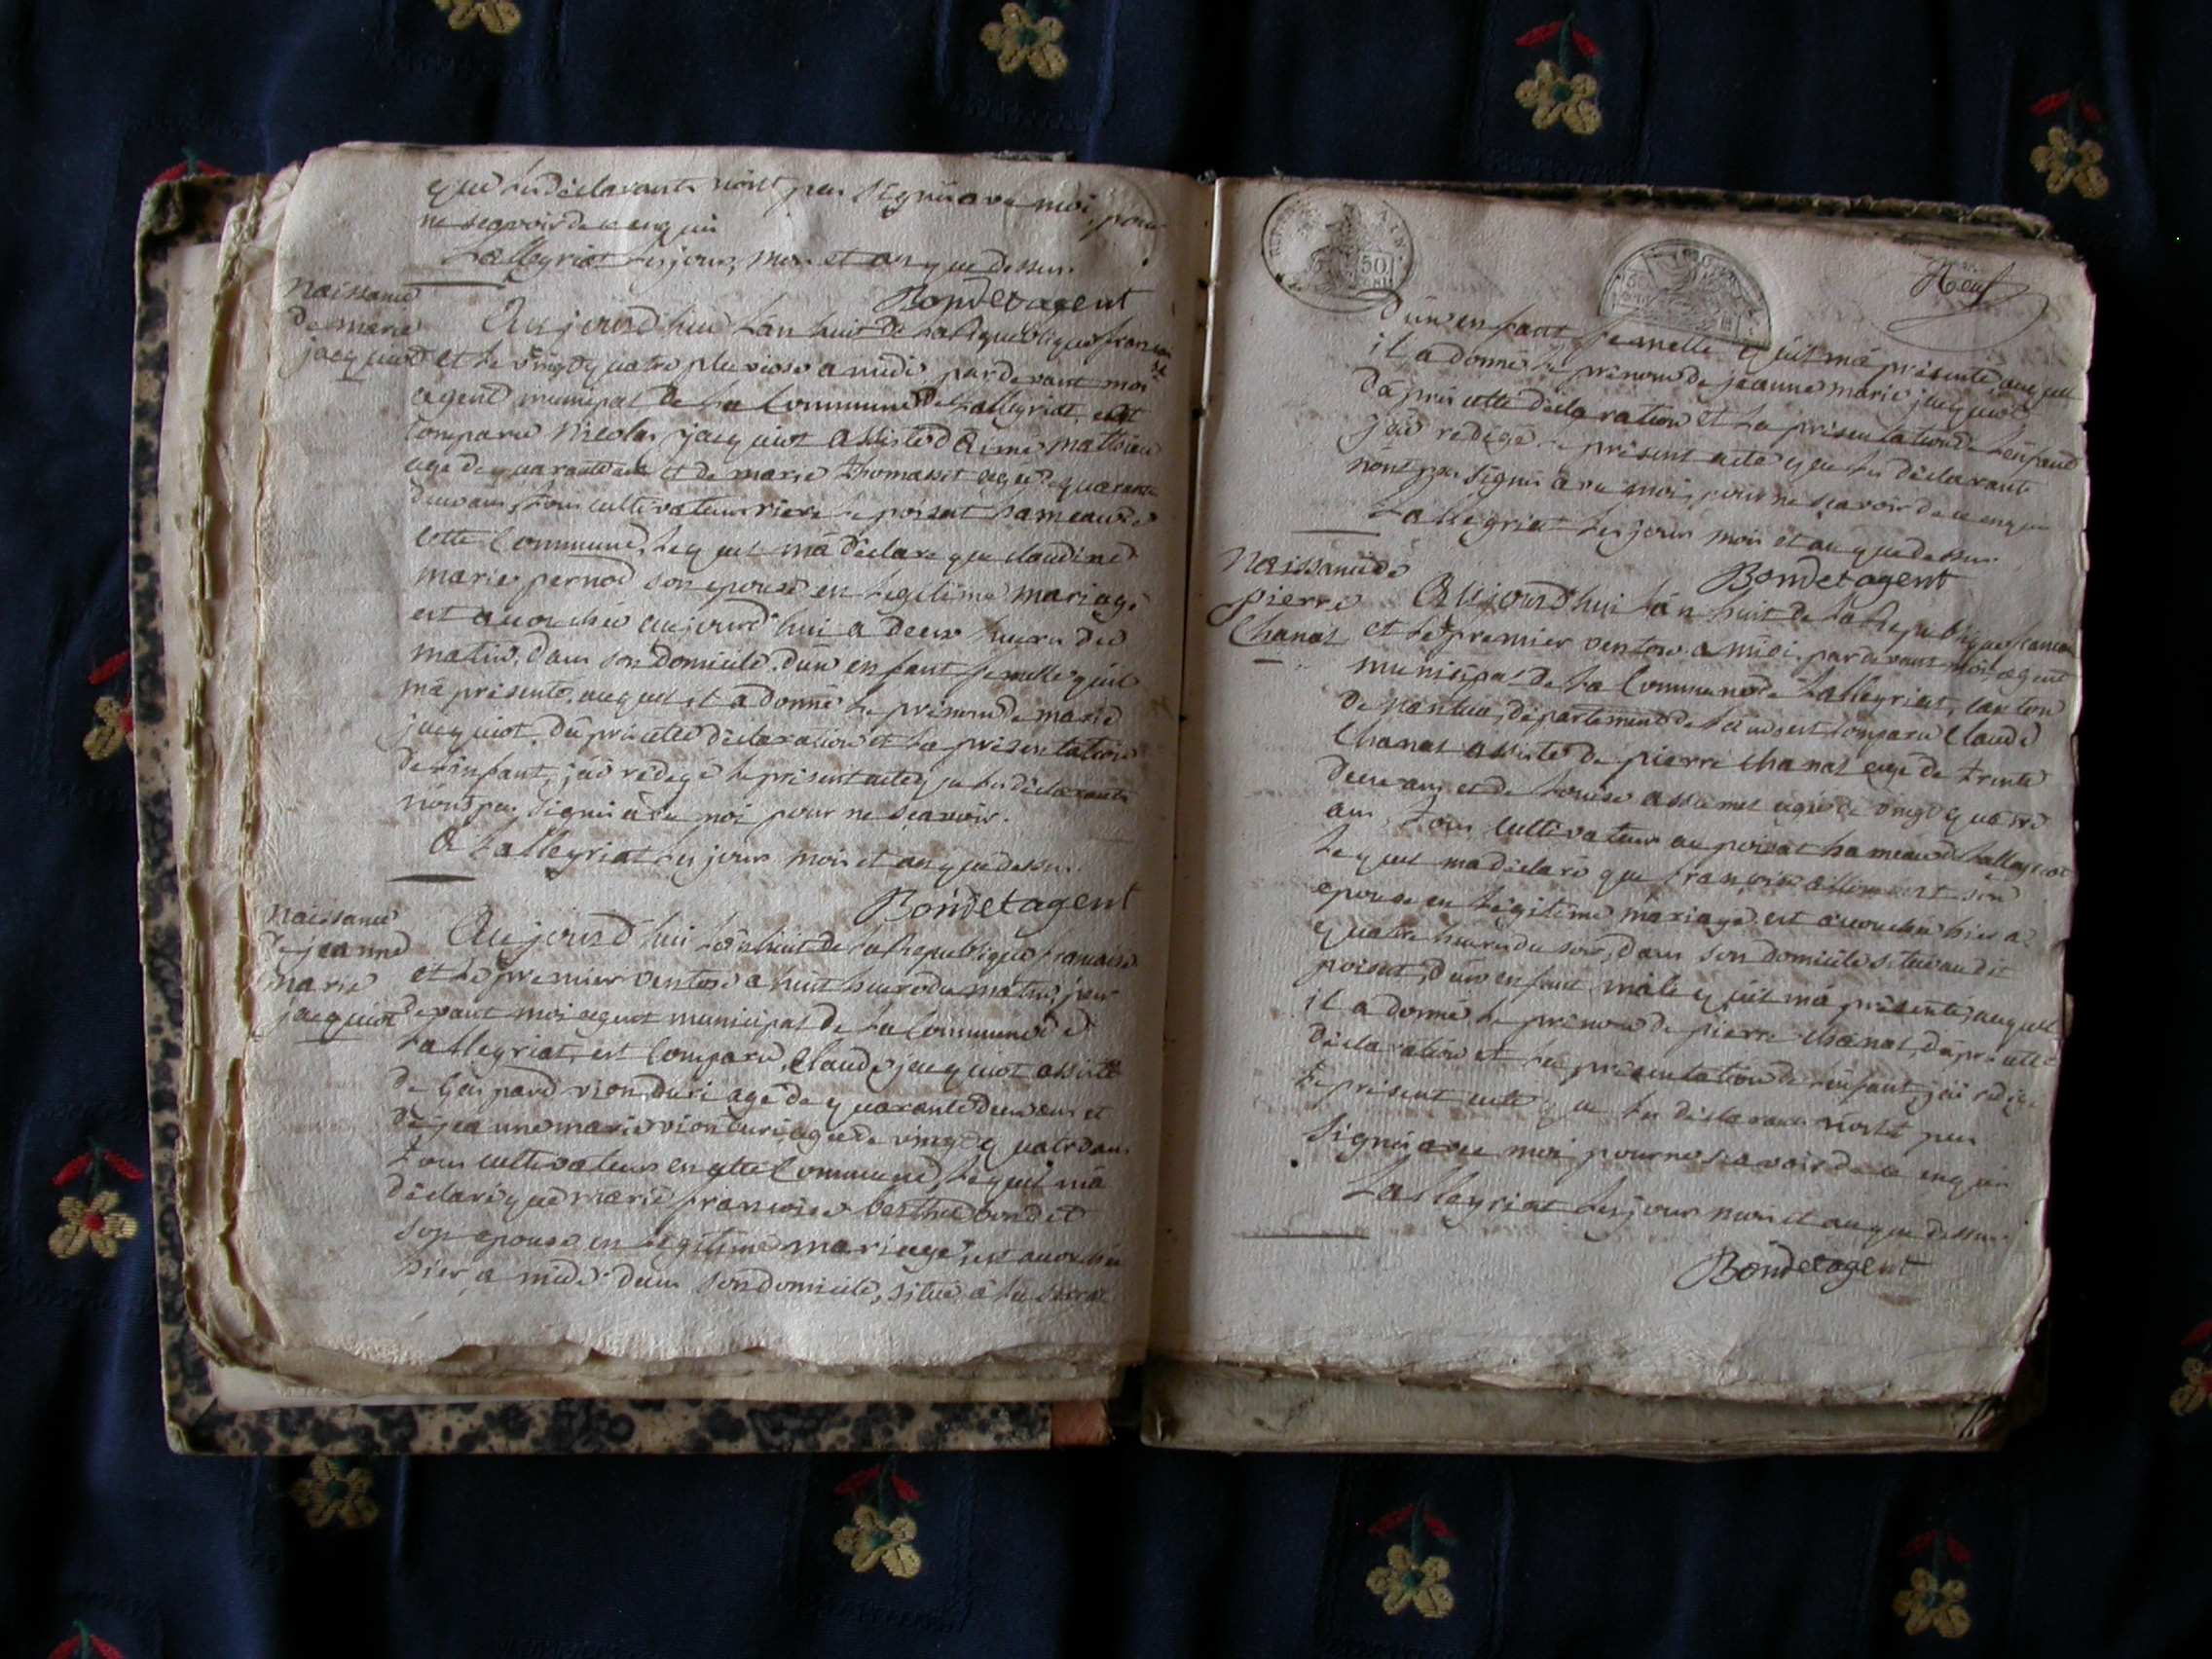 que les déclarants n'ont pas signé avec moi, pour
ne sçavoir de ce enquis
Lalleyriat les jours, mois et an que dessus.
Bondet agent
Naissance
de marie
jacquiot
Aujourd'hui l'an huit de la République francaise
et le vingt quatre pluviose a midi pardevant moi
agent municipal de la Commune de Lalleyriat, est
comparu Nicolas jacquiot assisté d'aimé mathieu
agé de quarante ans et de marie Thomasset agée de quarante
deux ans, tous cultivateurs rière le poisat hameau de
cette Commune, lequel m'a déclaré que claudine
marie pernod son epouse en légitime mariage
est accouchée aujourd'hui a deux heures du
matin, dans son domicile, d'un enfant femelle qu'il
m'a présenté, auquel il a donné le prénom de marie
jacquiot, d'après cette déclaration et la présentation
de l'enfant, j'ai rédigé le présent acte que les déclarants
n'ont pas signé avec moi pour ne sçavoir.
A Lalleyriat les jours mois et an que dessus.
Bondet agent
Naissance
de jeanne
marie
jacquiot
Aujourd'hui l'an huit de la République francaise
et le premier ventose a huit heures du matin, par
devant moi agent municipal de la Commune de
Lalleyriat, est comparu, Claude jacquiot assisté
de Gaspard vion, agé de quarante deux ans et
de jeanne marie vion, agée de vingt quatre ans
tous cultivateurs en cette Commune, lequel m'a
déclaré que marie francoise berthet bondet
son epouse en légitime mariage, est accouchée
hier a midi dans son domicile, situé à la
Neuf
d'un enfant femelle qu'il m'a présenté auquel
il a donné le prénom de jeanne marie jacquiot
d'après cette déclaration et la présentation de l'enfant
j'ai rédigé le présent acte que les déclarants
n'ont pas signé avec moi, pour ne sçavoir de ce enquis
Lalleyriat les jours mois et an que dessus.
Bondet agent
Naissance de
pierre
Chanal
Aujourd'hui l'an huit de la République francaise
et le premier ventose a midi, par devant moi agent
municipal de la Commune de Lalleyriat, canton
de Nantua, département de l'ain, est comparu Claude
Chanal assisté de pierre Chanal agé de trente
deux ans et de Louise agée de vingt quatre
ans, tous cultivateurs au poisat hameau de Lalleyriat
lequel m'a déclaré que francoise son
epouse en légitime mariage, est accouchée hier a
quatre heures du soir, dans son domicile situé audit
poisat, d'un enfant mâle qu'il m'a présenté, auquel
il a donné le prénom de pierre Chanal, d'après cette
déclaration et la présentation de l'enfant, j'ai rédigé
le présent acte que les déclarans n'ont pas
signé avec moi pour ne sçavoir de ce enquis
Lalleyriat les jours mois et an que dessus.
Bondet agent